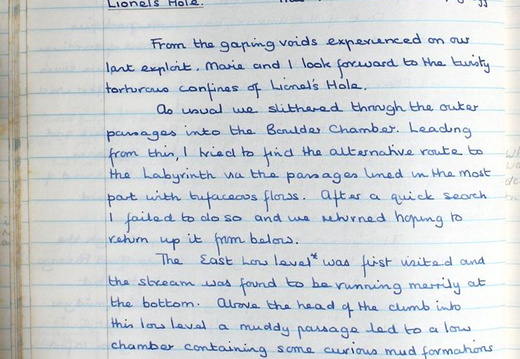 Lionel's Hole.
From the gaping voids experienced on our
last exploit, Marie and I look forward to the twisty
torturous confines of Lionel's Hole.
As usual we slithered through the outer
passages into the Boulder Chamber. Leading
from this, I tried to find the alternative route to
the Labyrinth via the passages lined in the most
part with tufaceous flows. After a quick search
I failed to do so and we returned hoping to
return up it from below.
The East Low level* was first visited and
the stream was found to be running merrily at
the bottom. Above the head of the climb into
this low level a muddy passage led to a low
chamber containing some curious mud formations